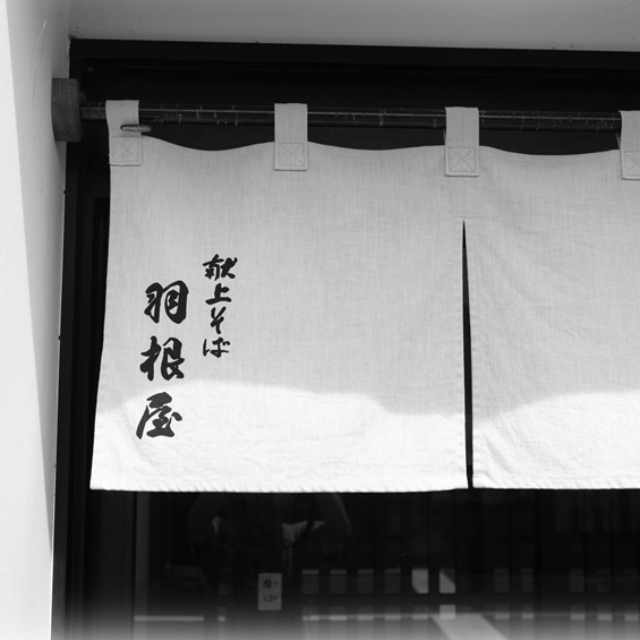 献上そば
羽根屋